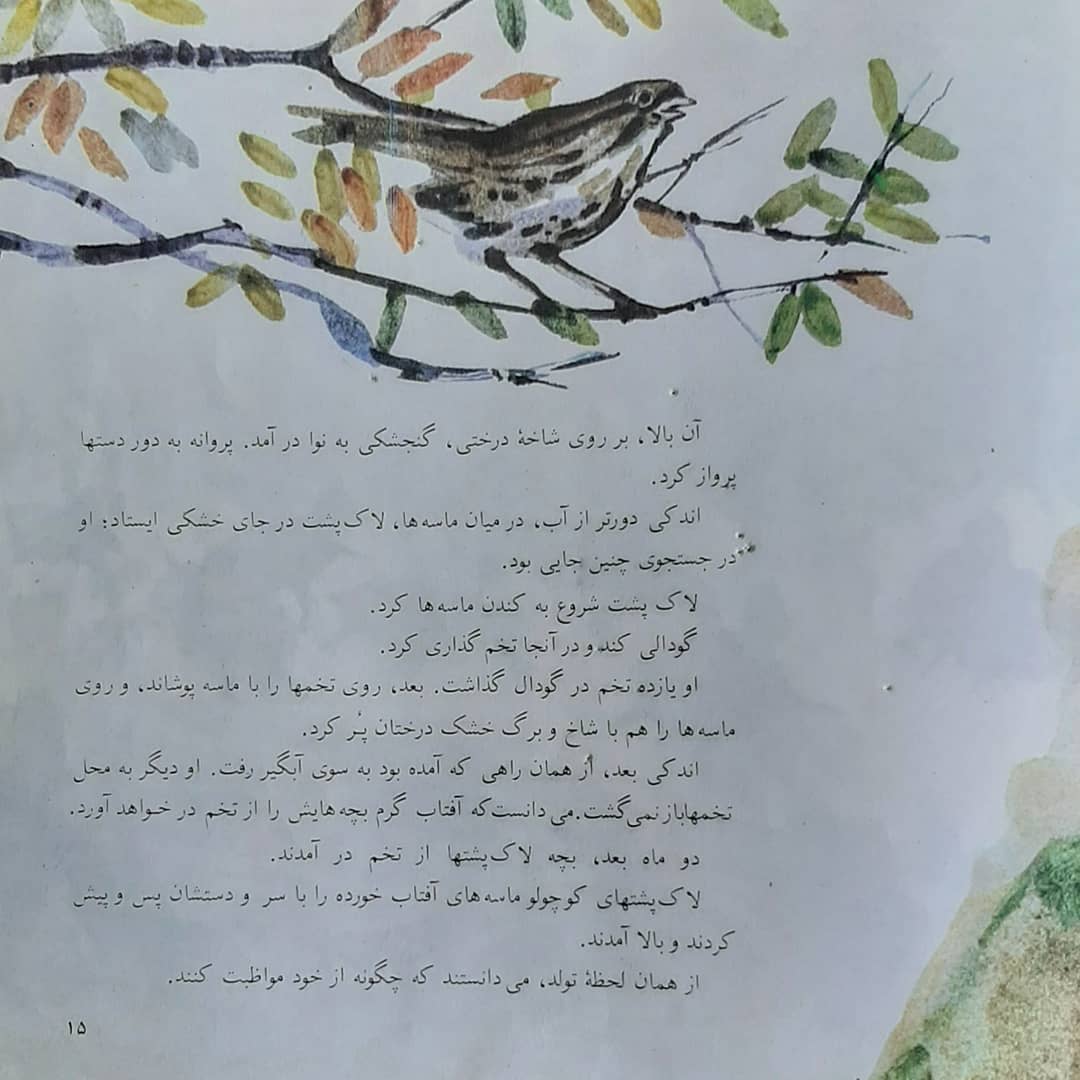 آن بالا، بر روی شاخهٔ درختی، گنجشکی به نوا در آمد. پروانه به دور دستها
پرواز کرد.
اندکی دورتر از آب، در میان ماسه‌ها، لاک‌پشت در جای خشکی ایستاد؛ او
در جستجوی چنین جایی بود.
لاک پشت شروع به کندن ماسه‌ها کرد.
گودالی کند و در آنجا تخم گذاری کرد.
او یازده تخم در گودال گذاشت. بعد، روی تخمها را با ماسه پوشاند، و روی
ماسه‌ها را هم با شاخ و برگ خشک درختان پُر کرد.
اندکی بعد، از همان راهی که آمده بود به سوی آبگیر رفت. او دیگر به محل
تخمها باز نمی‌گشت. می‌دانست که آفتاب گرم بچه‌هایش را از تخم در خواهد آورد.
دو ماه بعد، بچه لاک‌پشتها از تخم در آمدند.
لاک‌پشتهای کوچولو ماسه‌های آفتاب خورده را با سر و دستشان پس و پیش
کردند و بالا آمدند.
از همان لحظهٔ تولد، می‌دانستند که چگونه از خود مواظبت کنند.
۱۵